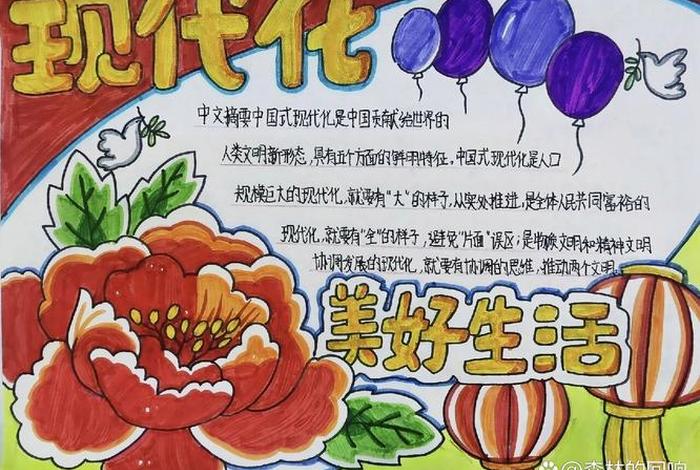 现代化
中文摘要中国式现代化是中国贡献给世界的
人类文明新形态,具有五个方面的鲜明特征。中国式现代化是人口
规模巨大的现代化,就要有“大”的样子,从实处推进,是全体人民共同富裕的
现代化,就要有“全”的样子,避免“片面”误区;是物质文明和精神文明
协调发展的现代化,就要有协调的思维,推动两个文明。
美好生活
森林的回响